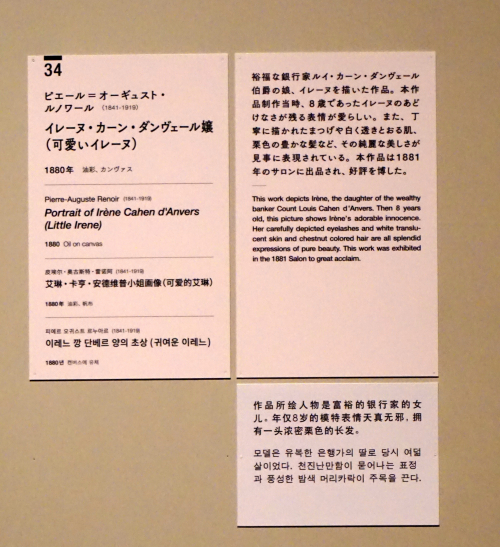 34
ピエール＝オーギュスト・
ルノワール (1841-1919)
イレーヌ・カーン・ダンヴェール嬢
（可愛いイレーヌ）
1880年 油彩、カンヴァス
Pierre-Auguste Renoir (1841-1919)
Portrait of Irène Cahen d'Anvers
(Little Irene)
1880 Oil on canvas
皮埃尔・奥古斯特・雷诺阿 (1841-1919)
艾琳・卡亨・安德维普小姐画像（可爱的艾琳）
1880年 油彩、帆布
피에르 오귀스트 르누아르 (1841-1919)
이레느 깡 단베르 양의 초상 (귀여운 이레느)
1880년 캔버스에 유채
裕福な銀行家ルイ・カーン・ダンヴェール
伯爵の娘、イレーヌを描いた作品。本作
品制作当時、8歳であったイレーヌのあど
けなさが残る表情が愛らしい。また、丁
寧に描かれたまつげや白く透きとおる肌、
栗色の豊かな髪など、その純麗な美しさが
見事に表現されている。本作品は1881
年のサロンに出品され、好評を博した。
This work depicts Irène, the daughter of the wealthy
banker Count Louis Cahen d'Anvers. Then 8 years
old, this picture shows Irène's adorable innocence.
Her carefully depicted eyelashes and white translu-
cent skin and chestnut colored hair are all splendid
expressions of pure beauty. This work was exhibited
in the 1881 Salon to great acclaim.
作品所绘人物是富裕的银行家的女
儿。年仅8岁的模特表情天真无邪，拥
有一头浓密栗色的长发。
모델은 유복한 은행가의 딸로 당시 여덟
살이었다. 천진난만함이 묻어나는 표정
과 풍성한 밤색 머리카락이 주목을 끈다.